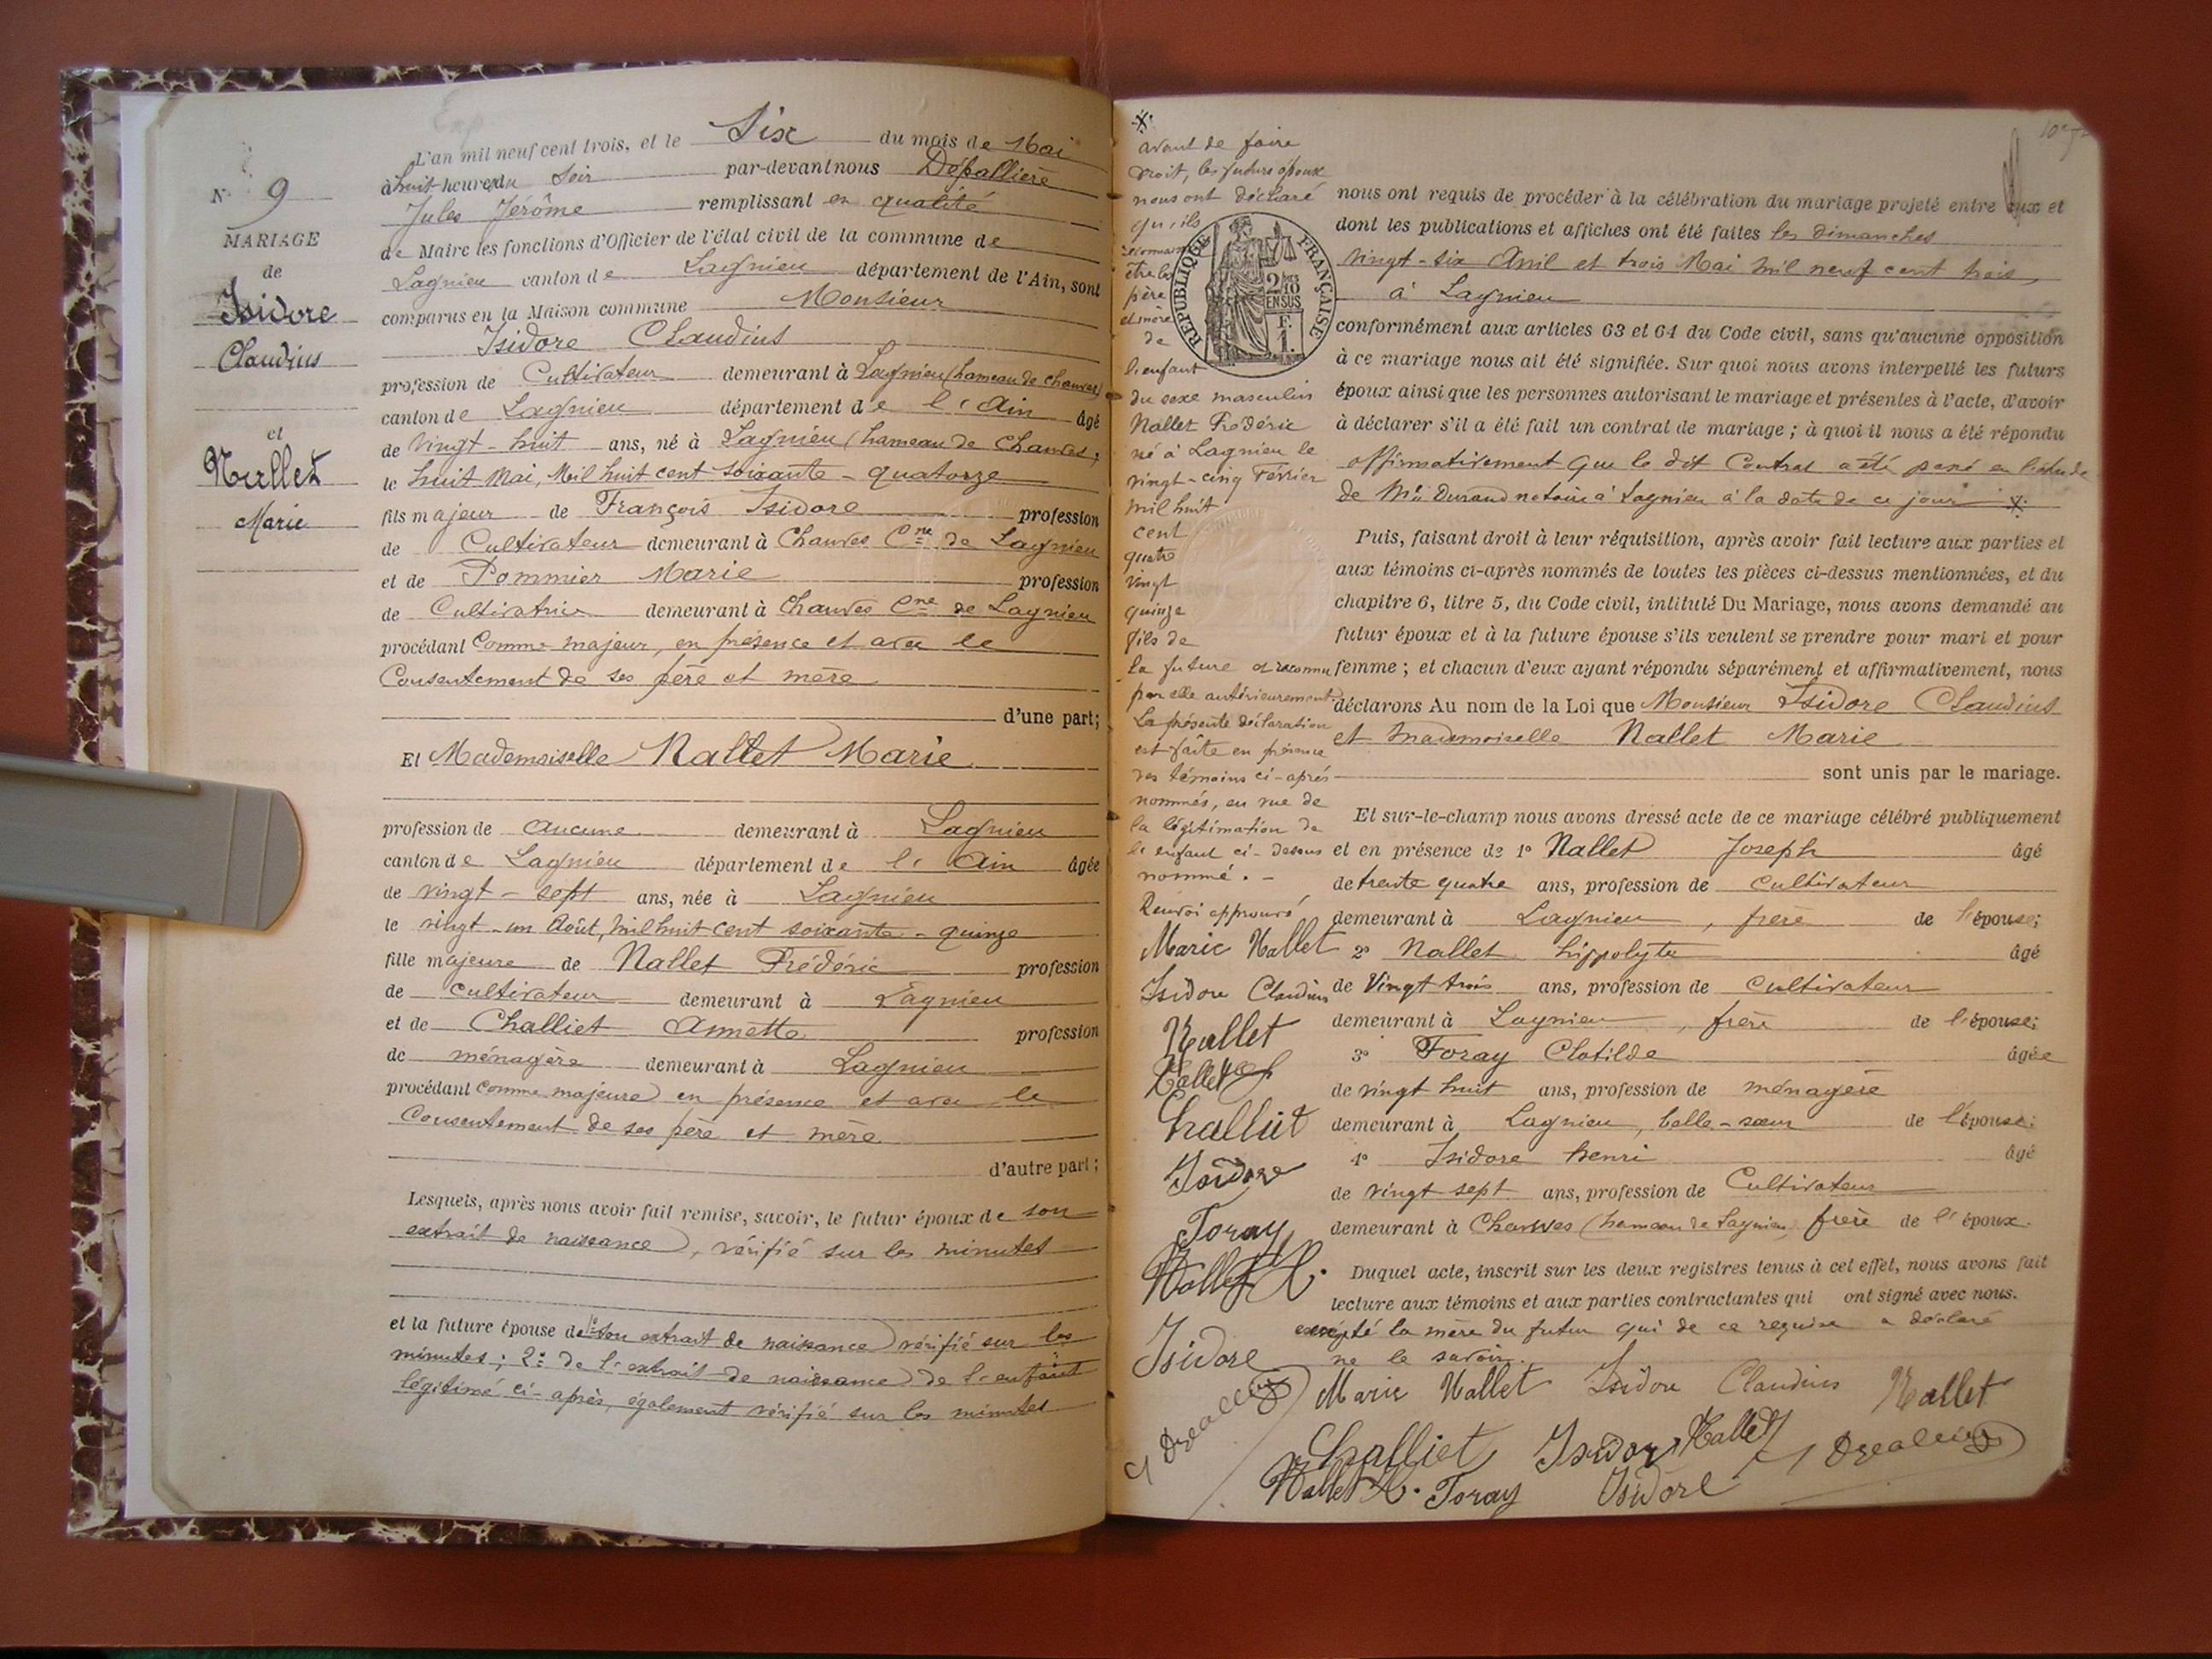 N° 9
MARIAGE
de
Isidore
Claudius
et
Nallet
Marie
L'an mil neuf cent trois, et le Six du mois de Mai
à huit heures du Soir par-devant nous Dépallière
Jules Jérôme remplissant en qualité
de Maire les fonctions d'Officier de l'état civil de la commune de
Lagnieu canton de Lagnieu département de l'Ain, sont
comparus en la Maison commune Monsieur
Isidore Claudius
profession de Cultivateur demeurant à Lagnieu (hameau de Chanves)
canton de Lagnieu département de l'Ain âgé
de vingt-huit ans, né à Lagnieu (hameau de Chanves,
le huit Mai, Mil huit cent soixante-quatorze
fils majeur de François Isidore profession
de Cultivateur demeurant à Chanves Cne de Lagnieu
et de Pommier Marie profession
de Cultivatrice demeurant à Chanves Cne de Lagnieu
procédant Comme majeur, en présence et avec le
Consentement de ses père et mère
d'une part;
Et Mademoiselle Nallet Marie
profession de aucune demeurant à Lagnieu
canton de Lagnieu département de l'Ain âgée
de vingt-sept ans, née à Lagnieu
le vingt-un Août, mil huit cent soixante-quinze
fille majeure de Nallet Frédéric profession
de cultivateur demeurant à Lagnieu
et de Challiet Annette profession
de ménagère demeurant à Lagnieu
procédant comme majeure en présence et avec le
Consentement de ses père et mère
d'autre part;
Lesquels, après nous avoir fait remise, savoir, le futur époux de son
extrait de naissance, vérifié sur les minutes
et la future épouse de 1° son extrait de naissance vérifié sur les
minutes; 2° de l'extrait de naissance de l'enfant
légitimé ci-après, également vérifié sur les minutes
X.
avant de faire
droit, les futurs époux
nous ont déclaré
qu'ils
reconnaissent
être les
père
et mère
de
l'enfant
du sexe masculin
Nallet Frédéric
né à Lagnieu le
vingt-cinq Février
mil huit
cent
quatre
vingt
quinze
fils de
la future et reconnu
par elle antérieurement
La présente déclaration
est faite en présence
des témoins ci-après
nommés, en vue de
la légitimation de
l'enfant ci-dessus
nommé.-
Renvoi approuvé
Marie Nallet
Isidore Claudius
Nallet
Nallet
Challiet
Isidore
Foray
Nallet H.
Isidore
RÉPUBLIQUE FRANÇAISE
2/10
EN SUS
F.
1.
nous ont requis de procéder à la célébration du mariage projeté entre eux et
dont les publications et affiches ont été faites les dimanches
vingt-six Avril et trois Mai mil neuf cent trois,
à Lagnieu
conformément aux articles 63 et 64 du Code civil, sans qu'aucune opposition
à ce mariage nous ait été signifiée. Sur quoi nous avons interpellé les futurs
époux ainsi que les personnes autorisant le mariage et présentes à l'acte, d'avoir
à déclarer s'il a été fait un contrat de mariage; à quoi il nous a été répondu
affirmativement que le dit Contrat a été passé en l'étude
de Me Durand notaire à Lagnieu à la date de ce jour X.
Puis, faisant droit à leur réquisition, après avoir fait lecture aux parties et
aux témoins ci-après nommés de toutes les pièces ci-dessus mentionnées, et du
chapitre 6, titre 5, du Code civil, intitulé Du Mariage, nous avons demandé au
futur époux et à la future épouse s'ils veulent se prendre pour mari et pour
femme; et chacun d'eux ayant répondu séparément et affirmativement, nous
déclarons Au nom de la Loi que Monsieur Isidore Claudius
et Mademoiselle Nallet Marie
sont unis par le mariage.
Et sur-le-champ nous avons dressé acte de ce mariage célébré publiquement
et en présence de 1° Nallet Joseph âgé
de trente quatre ans, profession de cultivateur
demeurant à Lagnieu, frère de l'épouse;
2° Nallet hippolyte âgé
de Vingt trois ans, profession de cultivateur
demeurant à Lagnieu, frère de l'épouse;
3° Foray Clotilde âgée
de vingt huit ans, profession de ménagère
demeurant à Lagnieu, belle-sœur de l'épouse;
4° Isidore henri âgé
de vingt sept ans, profession de Cultivateur
demeurant à Chanves (hameau de Lagnieu, frère de l'époux.
Duquel acte, inscrit sur les deux registres tenus à cet effet, nous avons fait
lecture aux témoins et aux parties contractantes qui ont signé avec nous.
excepté la mère du futur qui de ce requise a déclaré
ne le savoir.
Marie Nallet Isidore Claudius Nallet
Challiet Isidore Nallet
Nallet H. Foray Isidore